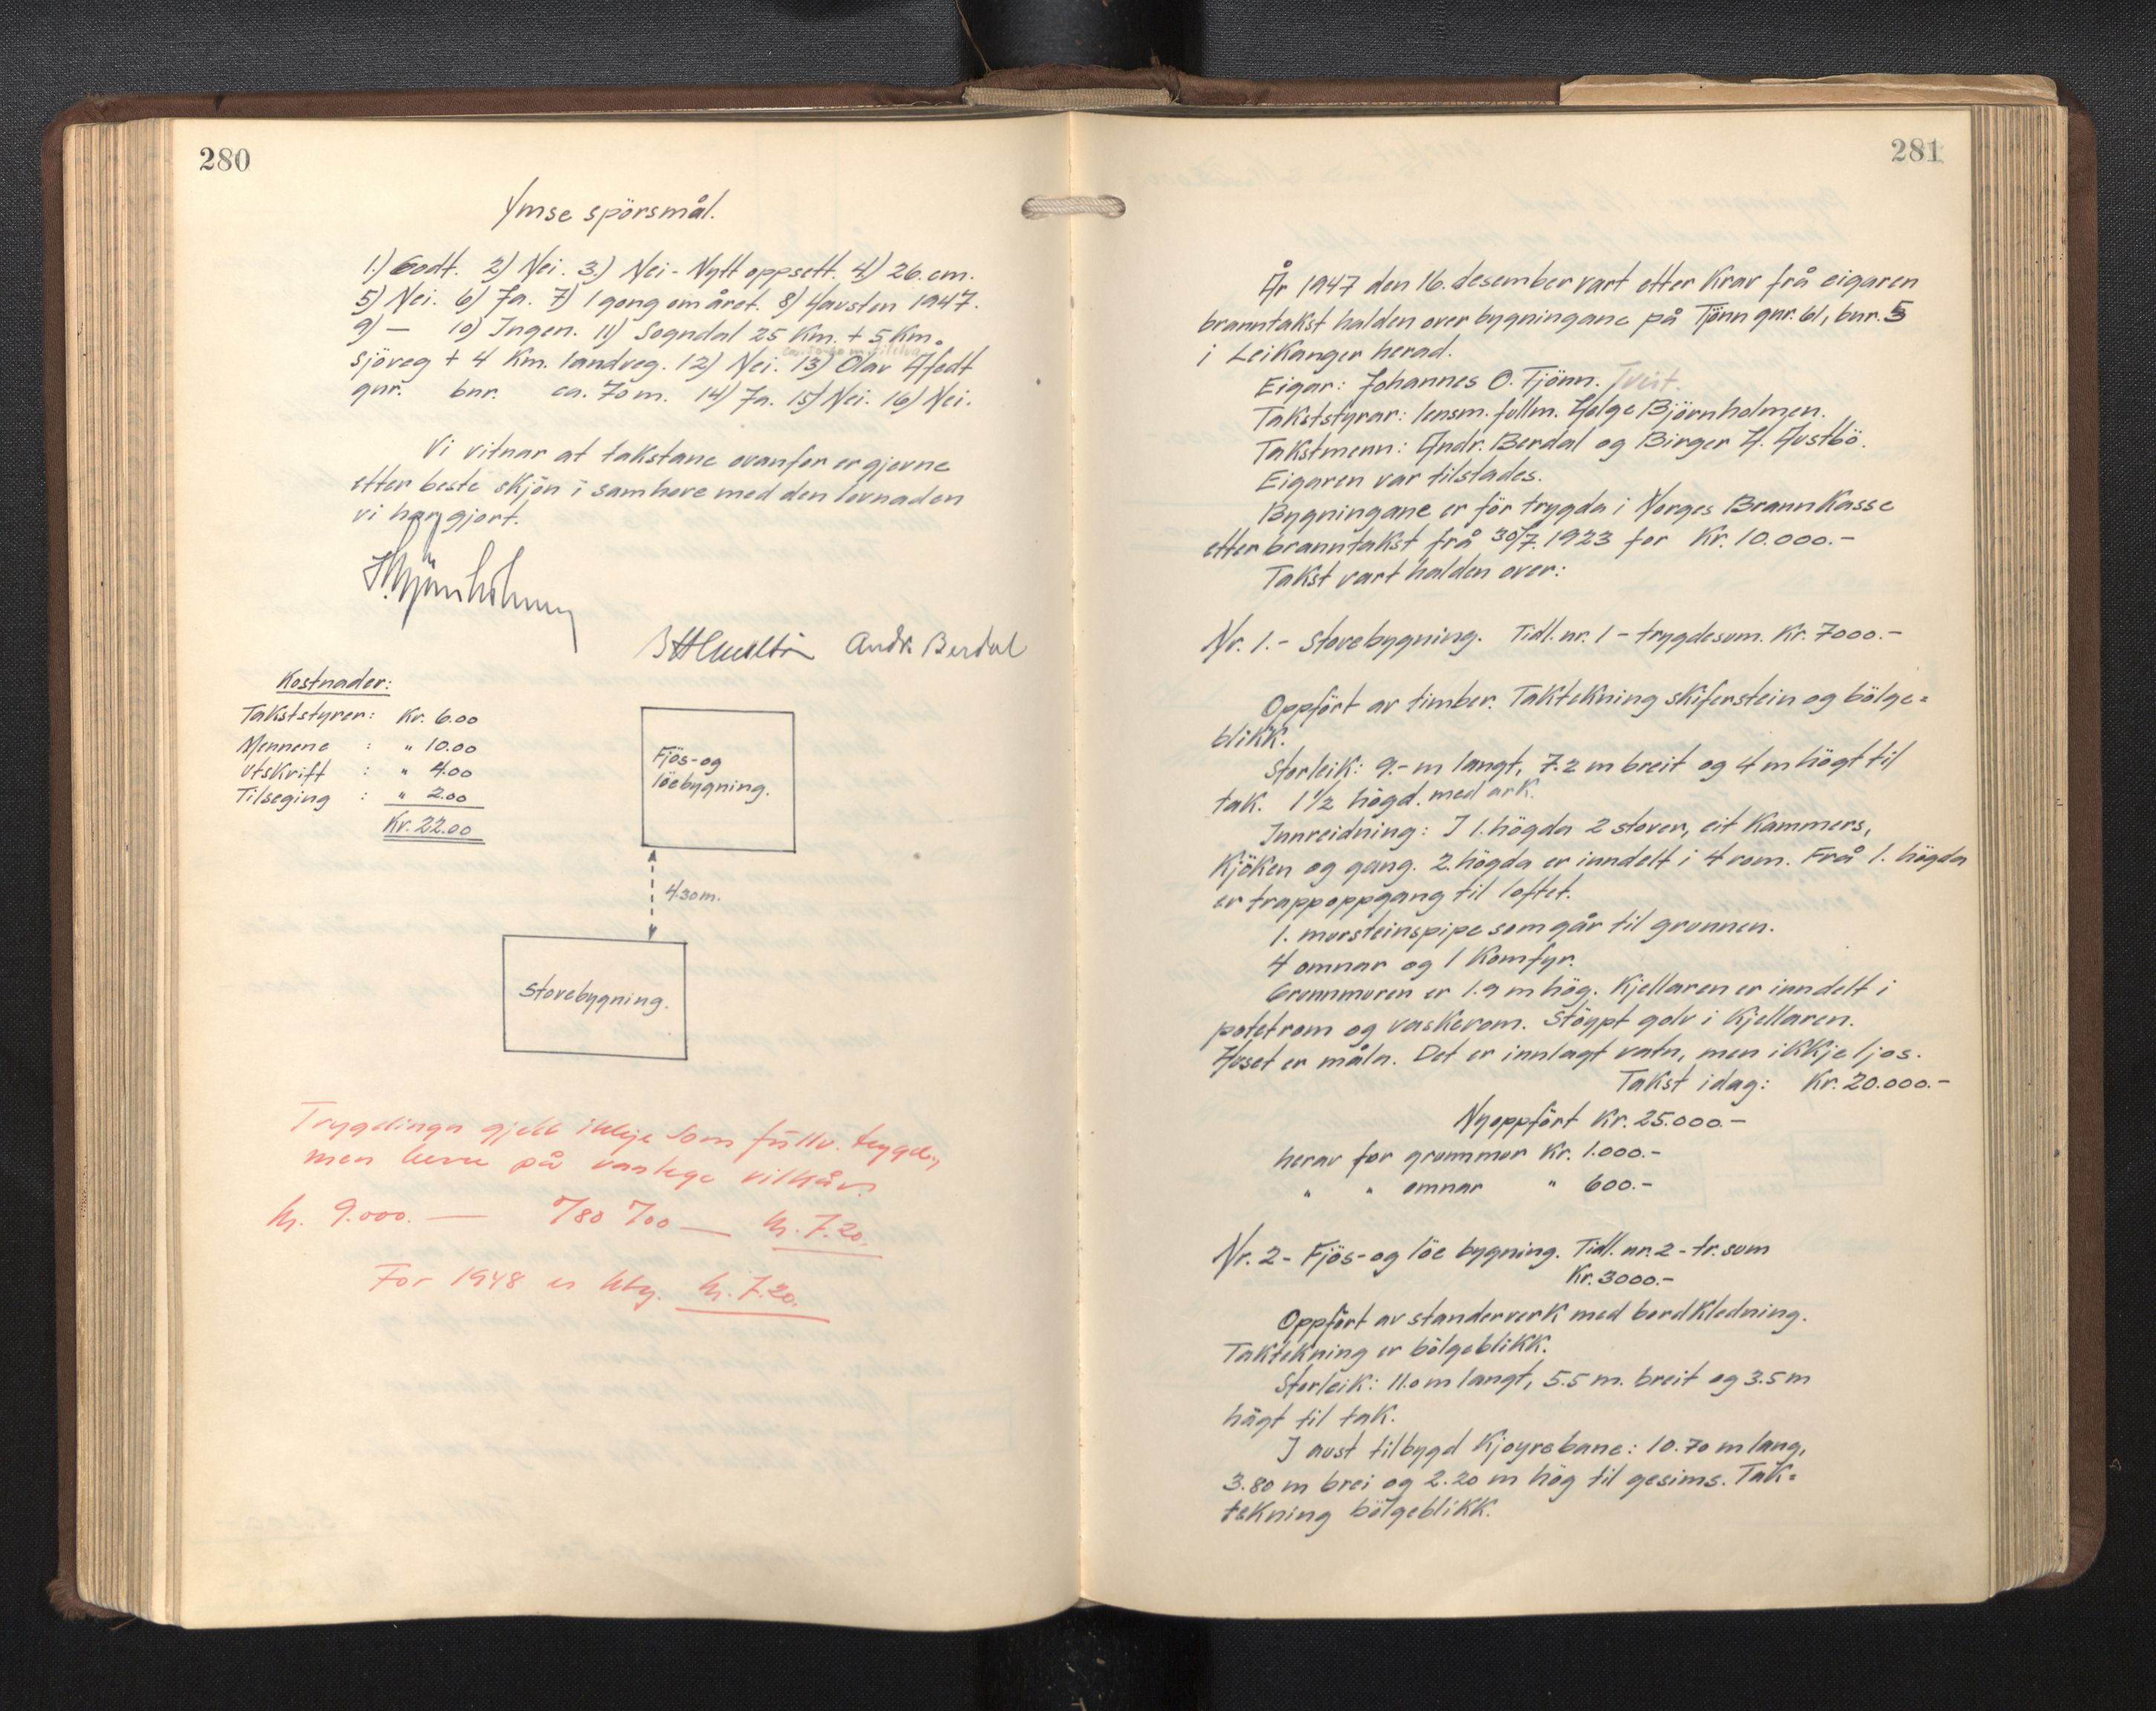 280
Ymse spörsmål.
1.) Godt. 2) Nei. 3.) Nei - Nytt oppsett. 4) 26. cm.
5) Nei. 6) Ja. 7) 1 gong om året. 8) Hausten 1947.
9) — 10) Ingen. 11) Sogndal 25 Km. + 5 Km.
sjöveg + 4 Km. landveg. 12) Nei. 13) Olav Afedt
gnr. bnr. ca. 70 m. 14) Ja. 15) Nei. 16) Nei.
Vi vitnar at takstane ovanfor er gjevne
etter beste skjön i samhøve med den lovnaden
vi har gjort.
H. Bjørnholmen
Andr. Berdal
Kostnader:
Takststyrer: Kr. 6.00
Mennene : " 10.00
Utskrift : " 4.00
Tilseging : " 2.00
Kr. 22.00
Fjös-og
löebygning.
4.30m.
Stovebygning.
Trygdinga gjeld ikkje som fullv. trygd.,
men berre på vanlege vilkår.
Kr. 9.000. — 0/80 %00 — Kr. 7.20.
For 1948 er btg. Kr. 7.20.
281
År 1947 den 16. desember vart etter Krav frå eigaren
branntakst halden over bygningane på Tjönn gnr. 61, bnr. 5
i Leikanger herad.
Eigar: Johannes O. Tjönn. Tveit.
Takststyrar: lensm. fullm. Helge Björnholmen.
Takstmenn: Andr. Berdal og Birger H. Hustbö.
Eigaren var tilstades.
Bygningane er för trygda i Norges Brannkasse
etter branntakst frå 30/7. 1923 for Kr. 10.000.-
Takst vart halden over:
Nr. 1. - Stovebygning. Tidl. nr. 1 - trygdesum. Kr. 7000.-
Oppfört av timber. Taktekning skiferstein og bölge=
blikk.
Storleik: 9.- m langt, 7.2 m breit og 4 m högt til
tak. 1 1/2 högd. med ark.
Innreidning: I 1. högda 2 stover, eit Kammers,
Kjöken og gang. 2. högda er inndelt i 4 rom. Frå 1. högda
er trappoppgang til loftet.
1. mursteinspipe som går til grunnen.
4 omnar og 1 Komfyr.
Grunnmuren er 1.9 m hög. Kjellaren er inndelt i
potetrom og vaskerom. Stöypt golv i Kjellaren.
Huset er måla. Det er innlagt vatn, men ikkje ljos.
Takst idag: Kr. 20.000.-
Nyoppfört Kr. 25.000.-
herav for grunnmur Kr. 1.000.-
" " omnar " 600.-
Nr. 2 - Fjös-og löe bygning. Tidl. nr. 2 - tr. sum
Kr. 3000.-
Oppfört av standerverk med bordkledning.
Taktekning er bölgeblikk.
Storleik: 11.0 m langt, 5.5 m. breit og 3.5 m
högt til tak.
I aust tilbygd Kjøyrebane: 10.70 m lang,
3.80 m brei og 2.20 m hög til gesims. Tak=
tekning bölgeblikk.